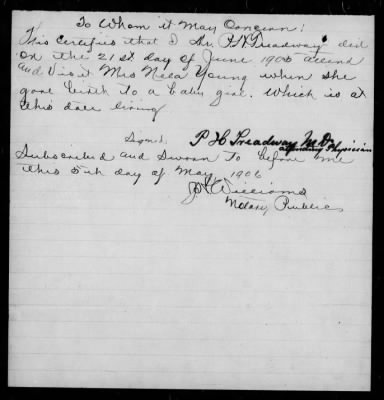 To Whom it May Concern:
This Certifies that I Dr. P. H. Treadway did
on the 21st day of June 1905 attend
and Visit Mrs Nela Young when she
gave birth to a baby girl. Which is at
this date living
Signed. P H Treadway M.D.
attending Physician
Subscribed and Sworn to before me
this 5th day of May, 1906
Williams
Notary Public